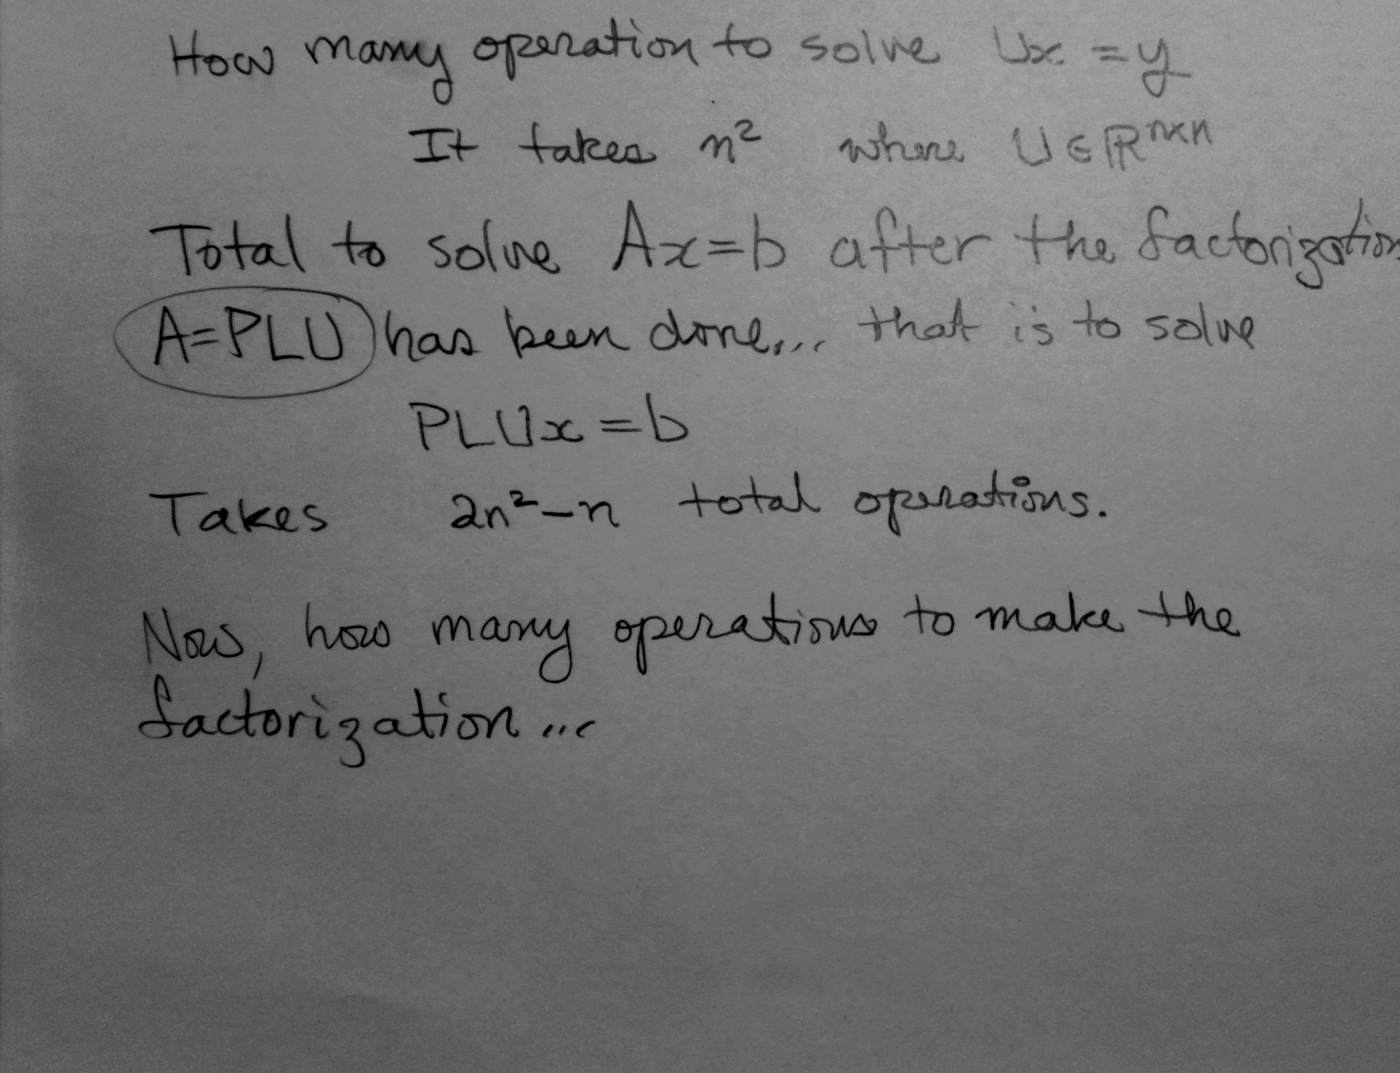 How many operation to solve Ux = y
It takes n² where U ∈ ℝⁿˣⁿ
Total to solve Ax=b after the factorization
A=PLU has been done... that is to solve
PLUx = b
Takes 2n²-n total operations.
Now, how many operations to make the
factorization...